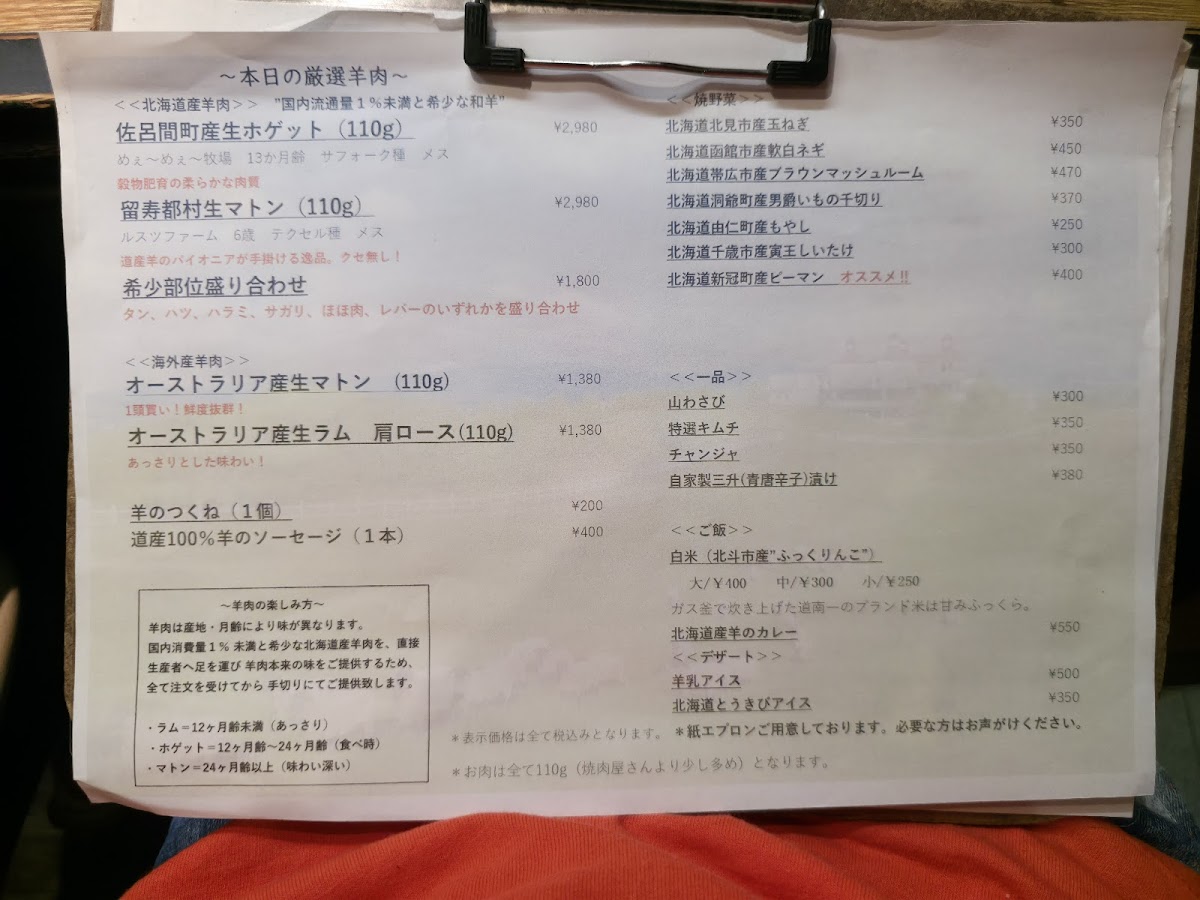 ～本日の厳選羊肉～
<<北海道産羊肉>> "国内流通量1%未満と希少な和羊"
佐呂間町産生ホゲット（110g） ¥2,980
めぇ～めぇ～牧場 13か月齢 サフォーク種 メス
穀物肥育の柔らかな肉質
留寿都村生マトン（110g） ¥2,980
ルスツファーム 6歳 テクセル種 メス
道産羊のパイオニアが手掛ける逸品。クセ無し！
希少部位盛り合わせ ¥1,800
タン、ハツ、ハラミ、サガリ、ほほ肉、レバーのいずれかを盛り合わせ
<<海外産羊肉>>
オーストラリア産生マトン (110g) ¥1,380
1頭買い！鮮度抜群！
オーストラリア産生ラム 肩ロース(110g) ¥1,380
あっさりとした味わい！
羊のつくね（1個） ¥200
道産100%羊のソーセージ（1本） ¥400
～羊肉の楽しみ方～
羊肉は産地・月齢により味が異なります。
国内消費量1% 未満と希少な北海道産羊肉を、直接
生産者へ足を運び 羊肉本来の味をご提供するため、
全て注文を受けてから 手切りにてご提供致します。
・ラム＝12ヶ月齢未満（あっさり）
・ホゲット＝12ヶ月齢～24ヶ月齢（食べ時）
・マトン＝24ヶ月齢以上（味わい深い）
<<焼野菜>>
北海道北見市産玉ねぎ ¥350
北海道函館市産軟白ネギ ¥450
北海道帯広市産ブラウンマッシュルーム ¥470
北海道洞爺町産男爵いもの千切り ¥370
北海道由仁町産もやし ¥250
北海道千歳市産寅王しいたけ ¥300
北海道新冠町産ピーマン オススメ!! ¥400
<<一品>>
山わさび ¥300
特選キムチ ¥350
チャンジャ ¥350
自家製三升(青唐辛子)漬け ¥380
<<ご飯>>
白米（北斗市産"ふっくりんこ"）
大/¥400 中/¥300 小/¥250
ガス釜で炊き上げた道南一のブランド米は甘みふっくら。
北海道産羊のカレー ¥550
<<デザート>>
羊乳アイス ¥500
北海道とうきびアイス ¥350
＊表示価格は全て税込みとなります。 ＊紙エプロンご用意しております。必要な方はお声がけください。
＊お肉は全て110g（焼肉屋さんより少し多め）となります。